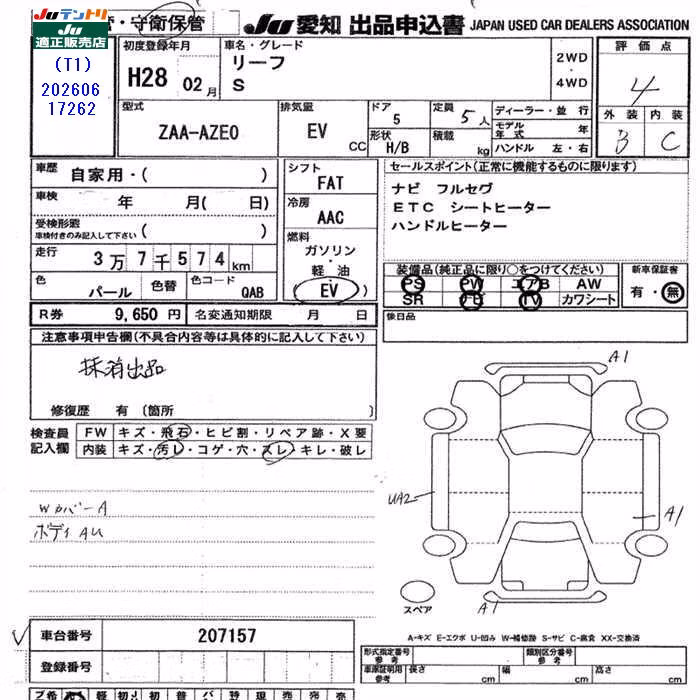 Juテントリ
Ju
適正販売店
(T1)
202606
17262
・守衛保管
Ju 愛知 出品申込書 JAPAN USED CAR DEALERS ASSOCIATION
初度登録年月
H28 02月
車名・グレード
リーフ
S
2WD
・
4WD
評価点
4
外装 内装
B C
型式
ZAA-AZE0
排気量
EV
CC
ドア
5
定員
5人
形状
H/B
積載
kg
ディーラー・並行
モデル年式 年
ハンドル 左・右
車歴
自家用・( )
車検
年 月( 日)
受検形態
車検付きのみ記入して下さい ( )
走行
3万7千574km
色
パール
色替
色コード
QAB
シフト
FAT
冷房
AAC
燃料
ガソリン
・
軽油
EV
セールスポイント(正常に機能するものに限ります)
ナビ フルセグ
ETC シートヒーター
ハンドルヒーター
装備品(純正品に限り○をつけてください)
PS PW エアB AW
SR ナビ TV カワシート
新車保証書
有・無
R券 9,650円 名変通知期限 月 日
後日品
注意事項申告欄(不具合内容等は具体的に記入して下さい)
抹消出品
修復歴 有〔箇所 〕
検査員
記入欄
FW キズ・飛石・ヒビ割・リペア跡・X要
内装 キズ・汚レ・コゲ・穴・スレ・キレ・破レ
Wカバー A
ボディ AU
A1
UA2
A1
A1
スペア
A-キズ E-エクボ U-凹み W-補修跡 S-サビ C-腐食 XX-交換済
車台番号 207157
登録番号
形式指定番号
参考
類別区分番号
参考
車庫証明用
参考
長さ cm 幅 cm 高さ cm